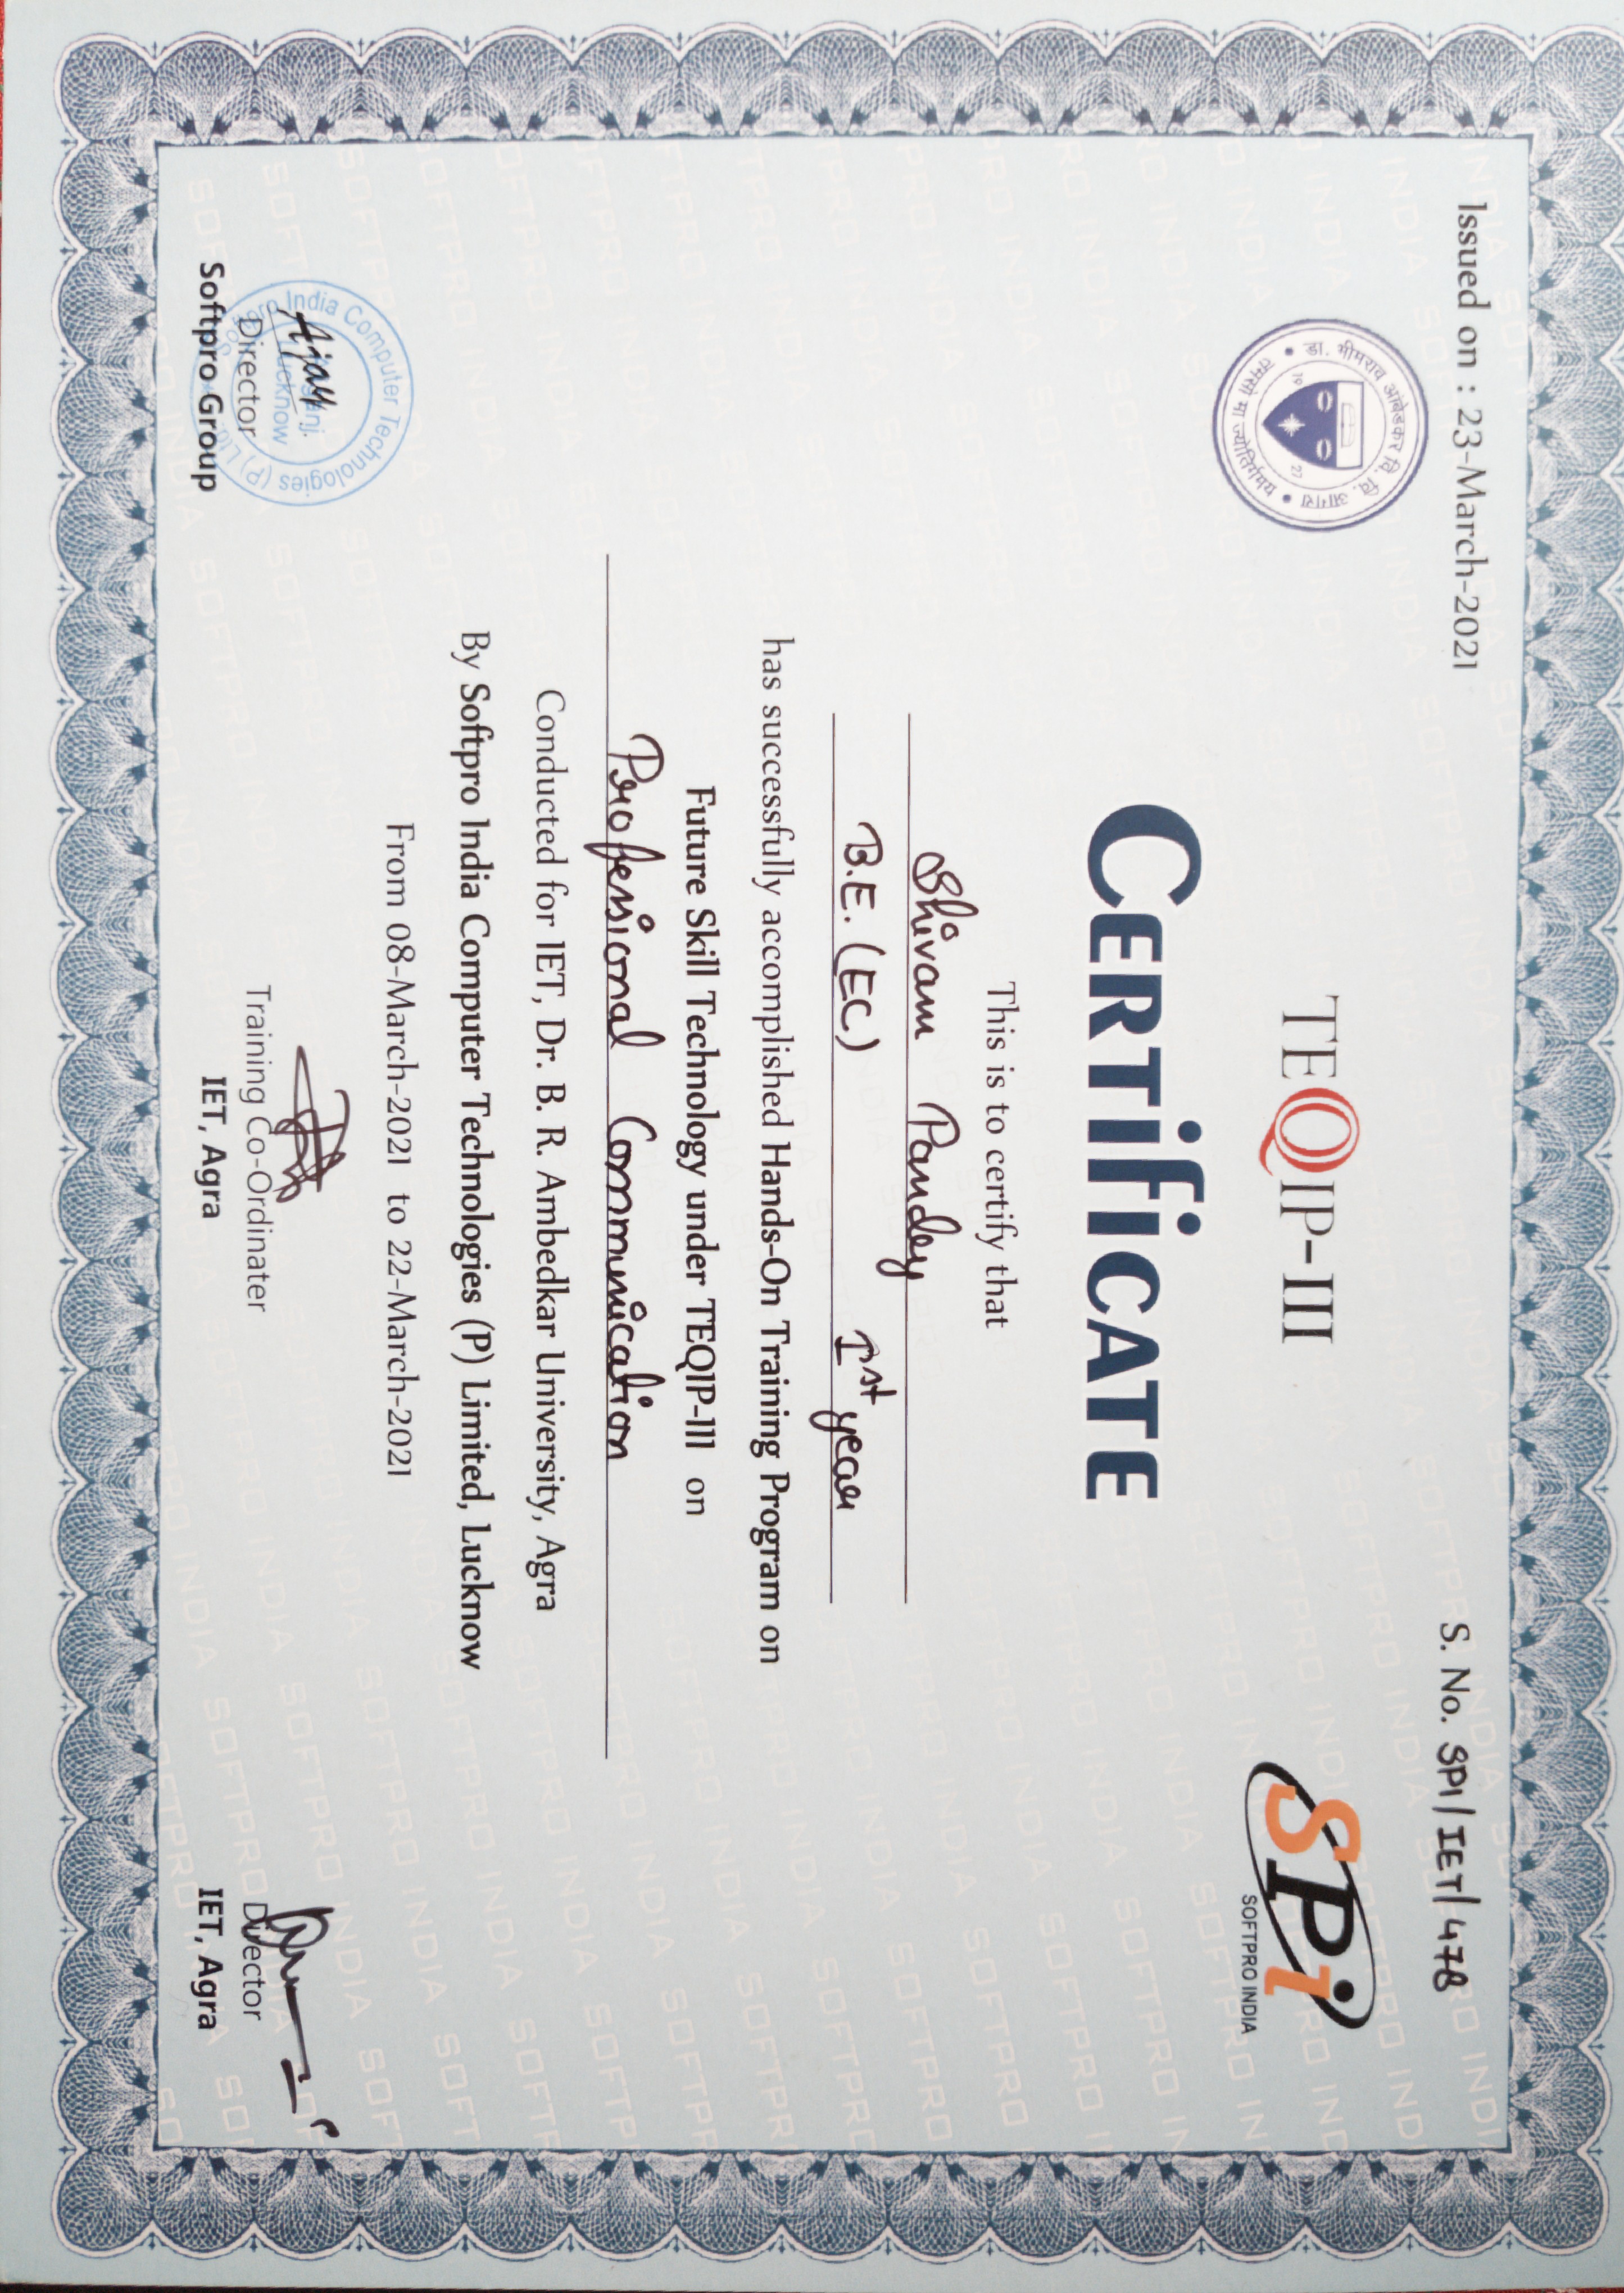 Issued on : 23-March-2021
S. No. SPI/IET/478
डा. भीमराव आंबेडकर वि. वि. आगरा
19 27
तमसो मा ज्योतिर्गमय
TEQIP-III
SPi
SOFTPRO INDIA
CERTiFiCATE
This is to certify that
Shivam Pandey
B.E. (EC) Ist year
has successfully accomplished Hands-On Training Program on
Future Skill Technology under TEQIP-III on
Professional Communication
Conducted for IET, Dr. B. R. Ambedkar University, Agra
By Softpro India Computer Technologies (P) Limited, Lucknow
From 08-March-2021 to 22-March-2021
Softpro India Computer Technologies (P) Ltd.
Lucknow
Ajay
Director
Softpro Group
Training Co-Ordinater
IET, Agra
Director
IET, Agra